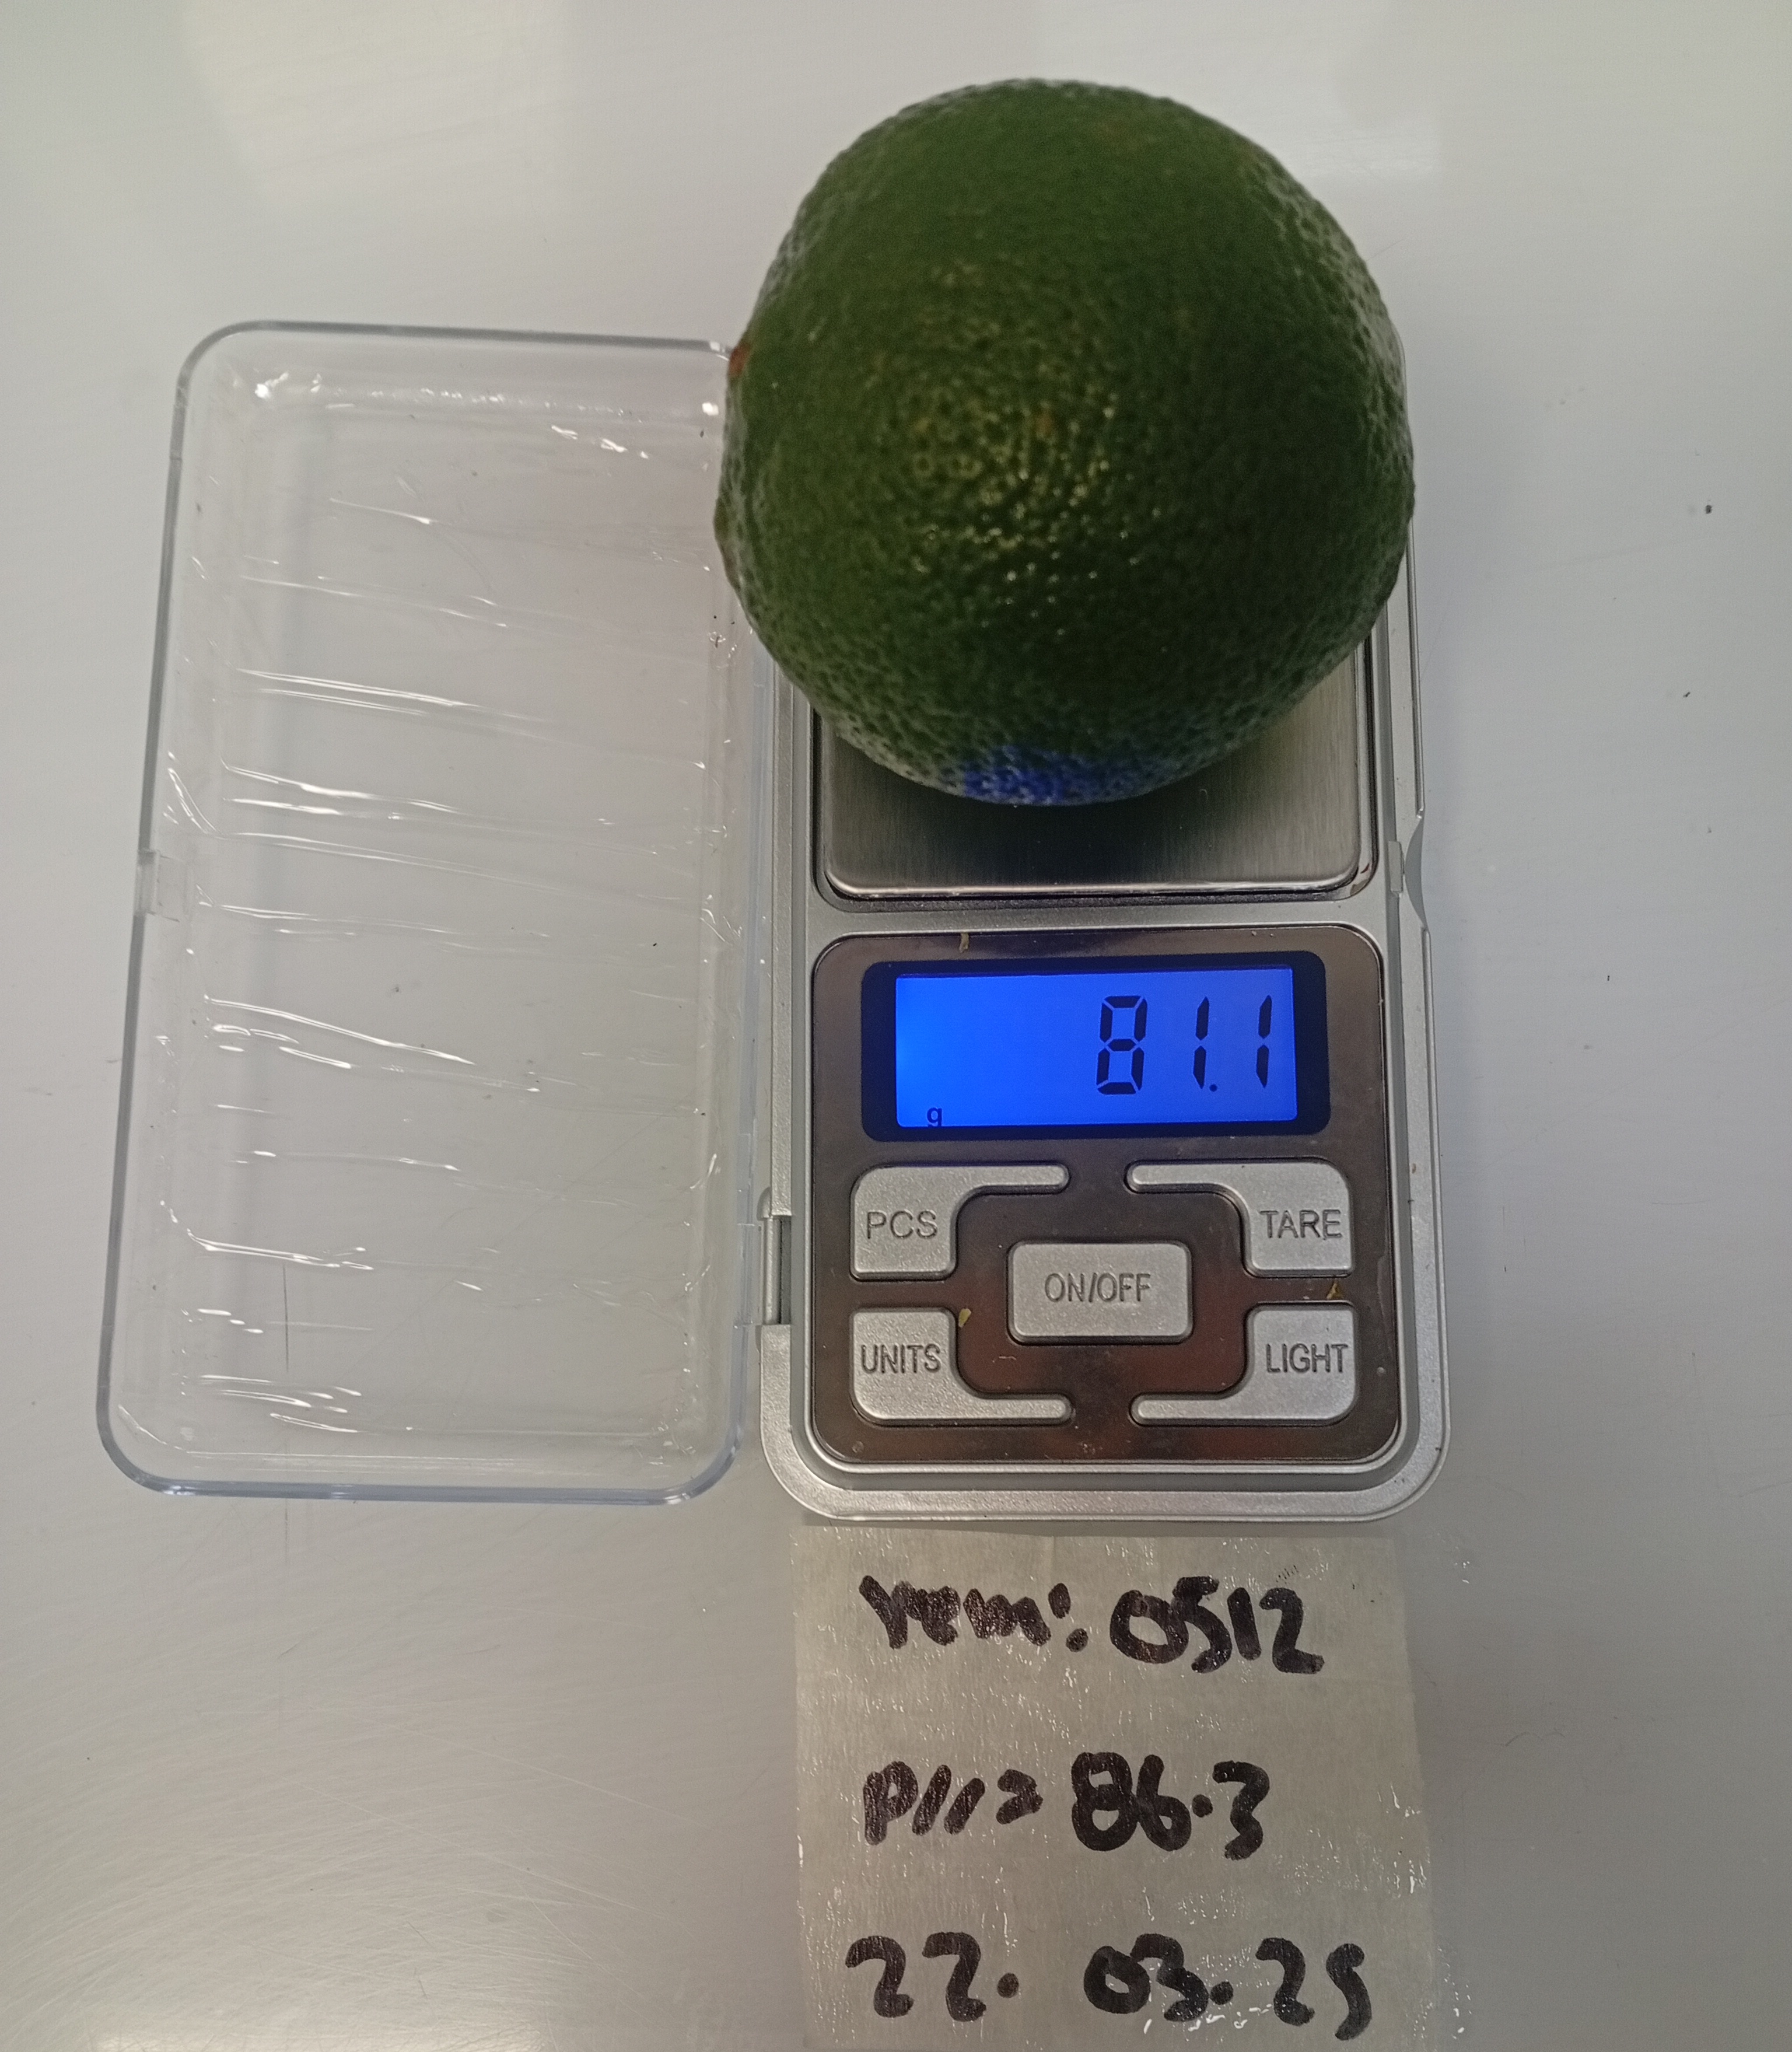 81.1
g
PCS
TARE
ON/OFF
UNITS
LIGHT
: 0512
86.3
22. 03.25